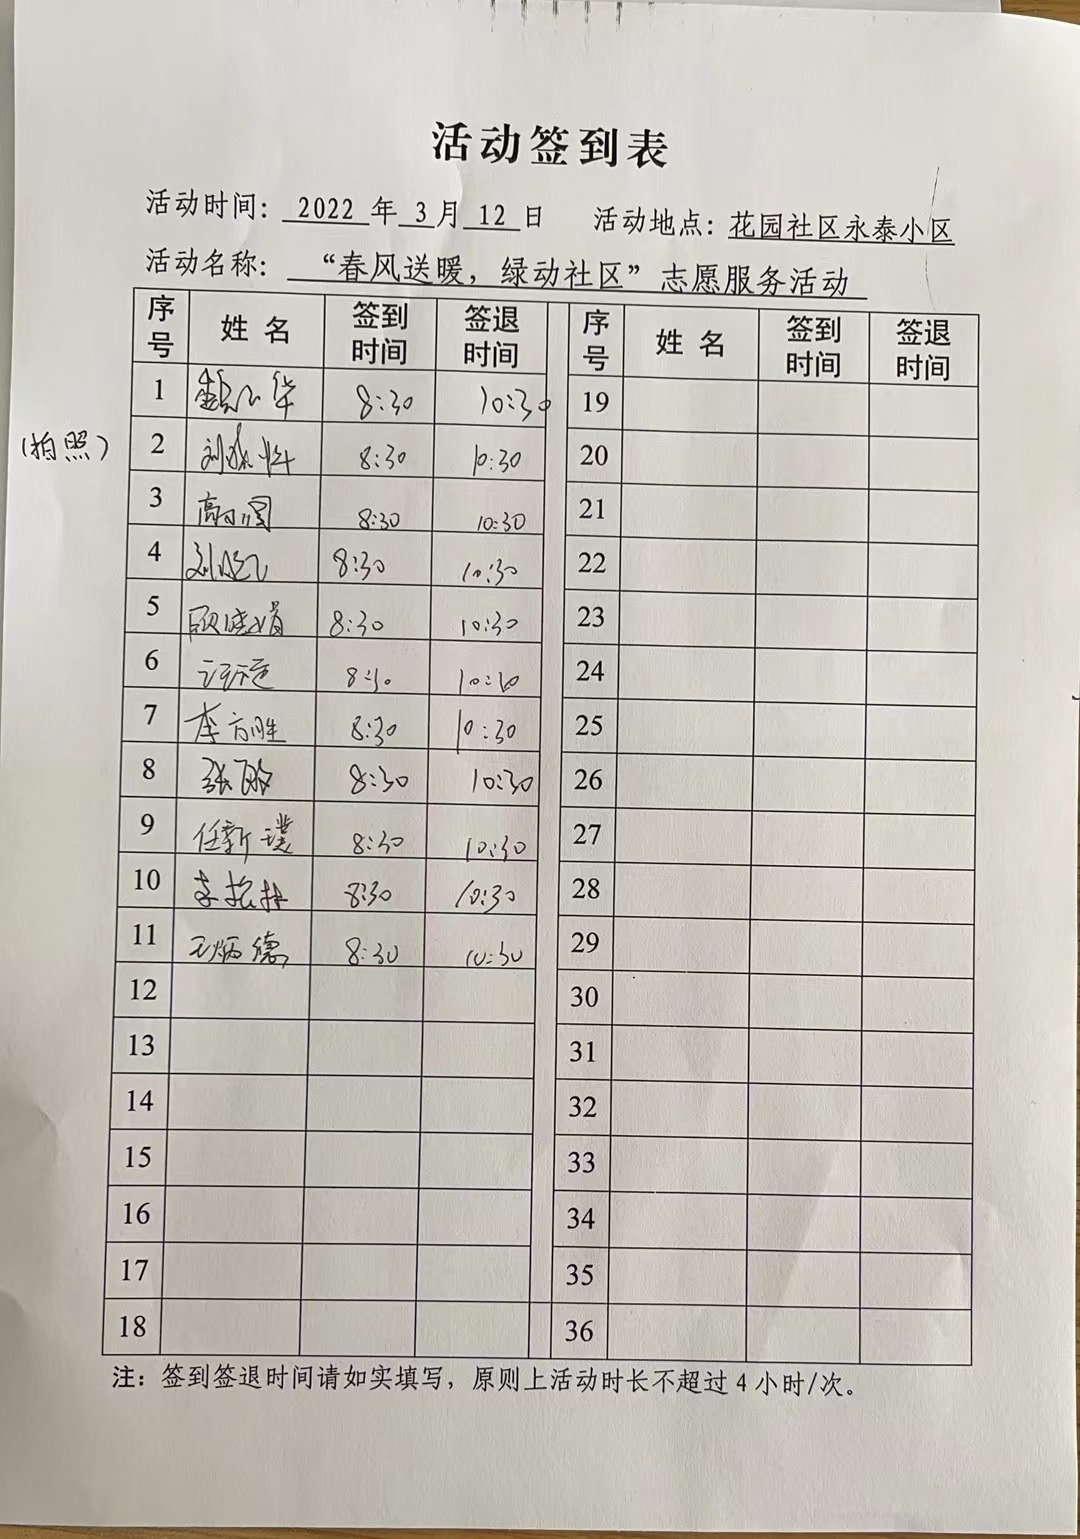 活动签到表
活动时间: 2022 年 3 月 12 日 活动地点: 花园社区永泰小区
活动名称: “春风送暖, 绿动社区”志愿服务活动
序号 姓名 签到时间 签退时间 序号 姓名 签到时间 签退时间
1 8:30 10:30 19
(拍照) 2 刘 8:30 10:30 20
3 高 8:30 10:30 21
4 刘 8:30 10:30 22
5 晓娟 8:30 10:30 23
6 8:30 24
7 李方胜 8:30 10:30 25
8 张 8:30 10:30 26
9 任新璞 8:30 10:30 27
10 李 8:30 10:30 28
11 王炳德 8:30 10:30 29
12 30
13 31
14 32
15 33
16 34
17 35
18 36
注: 签到签退时间请如实填写, 原则上活动时长不超过 4 小时/次。